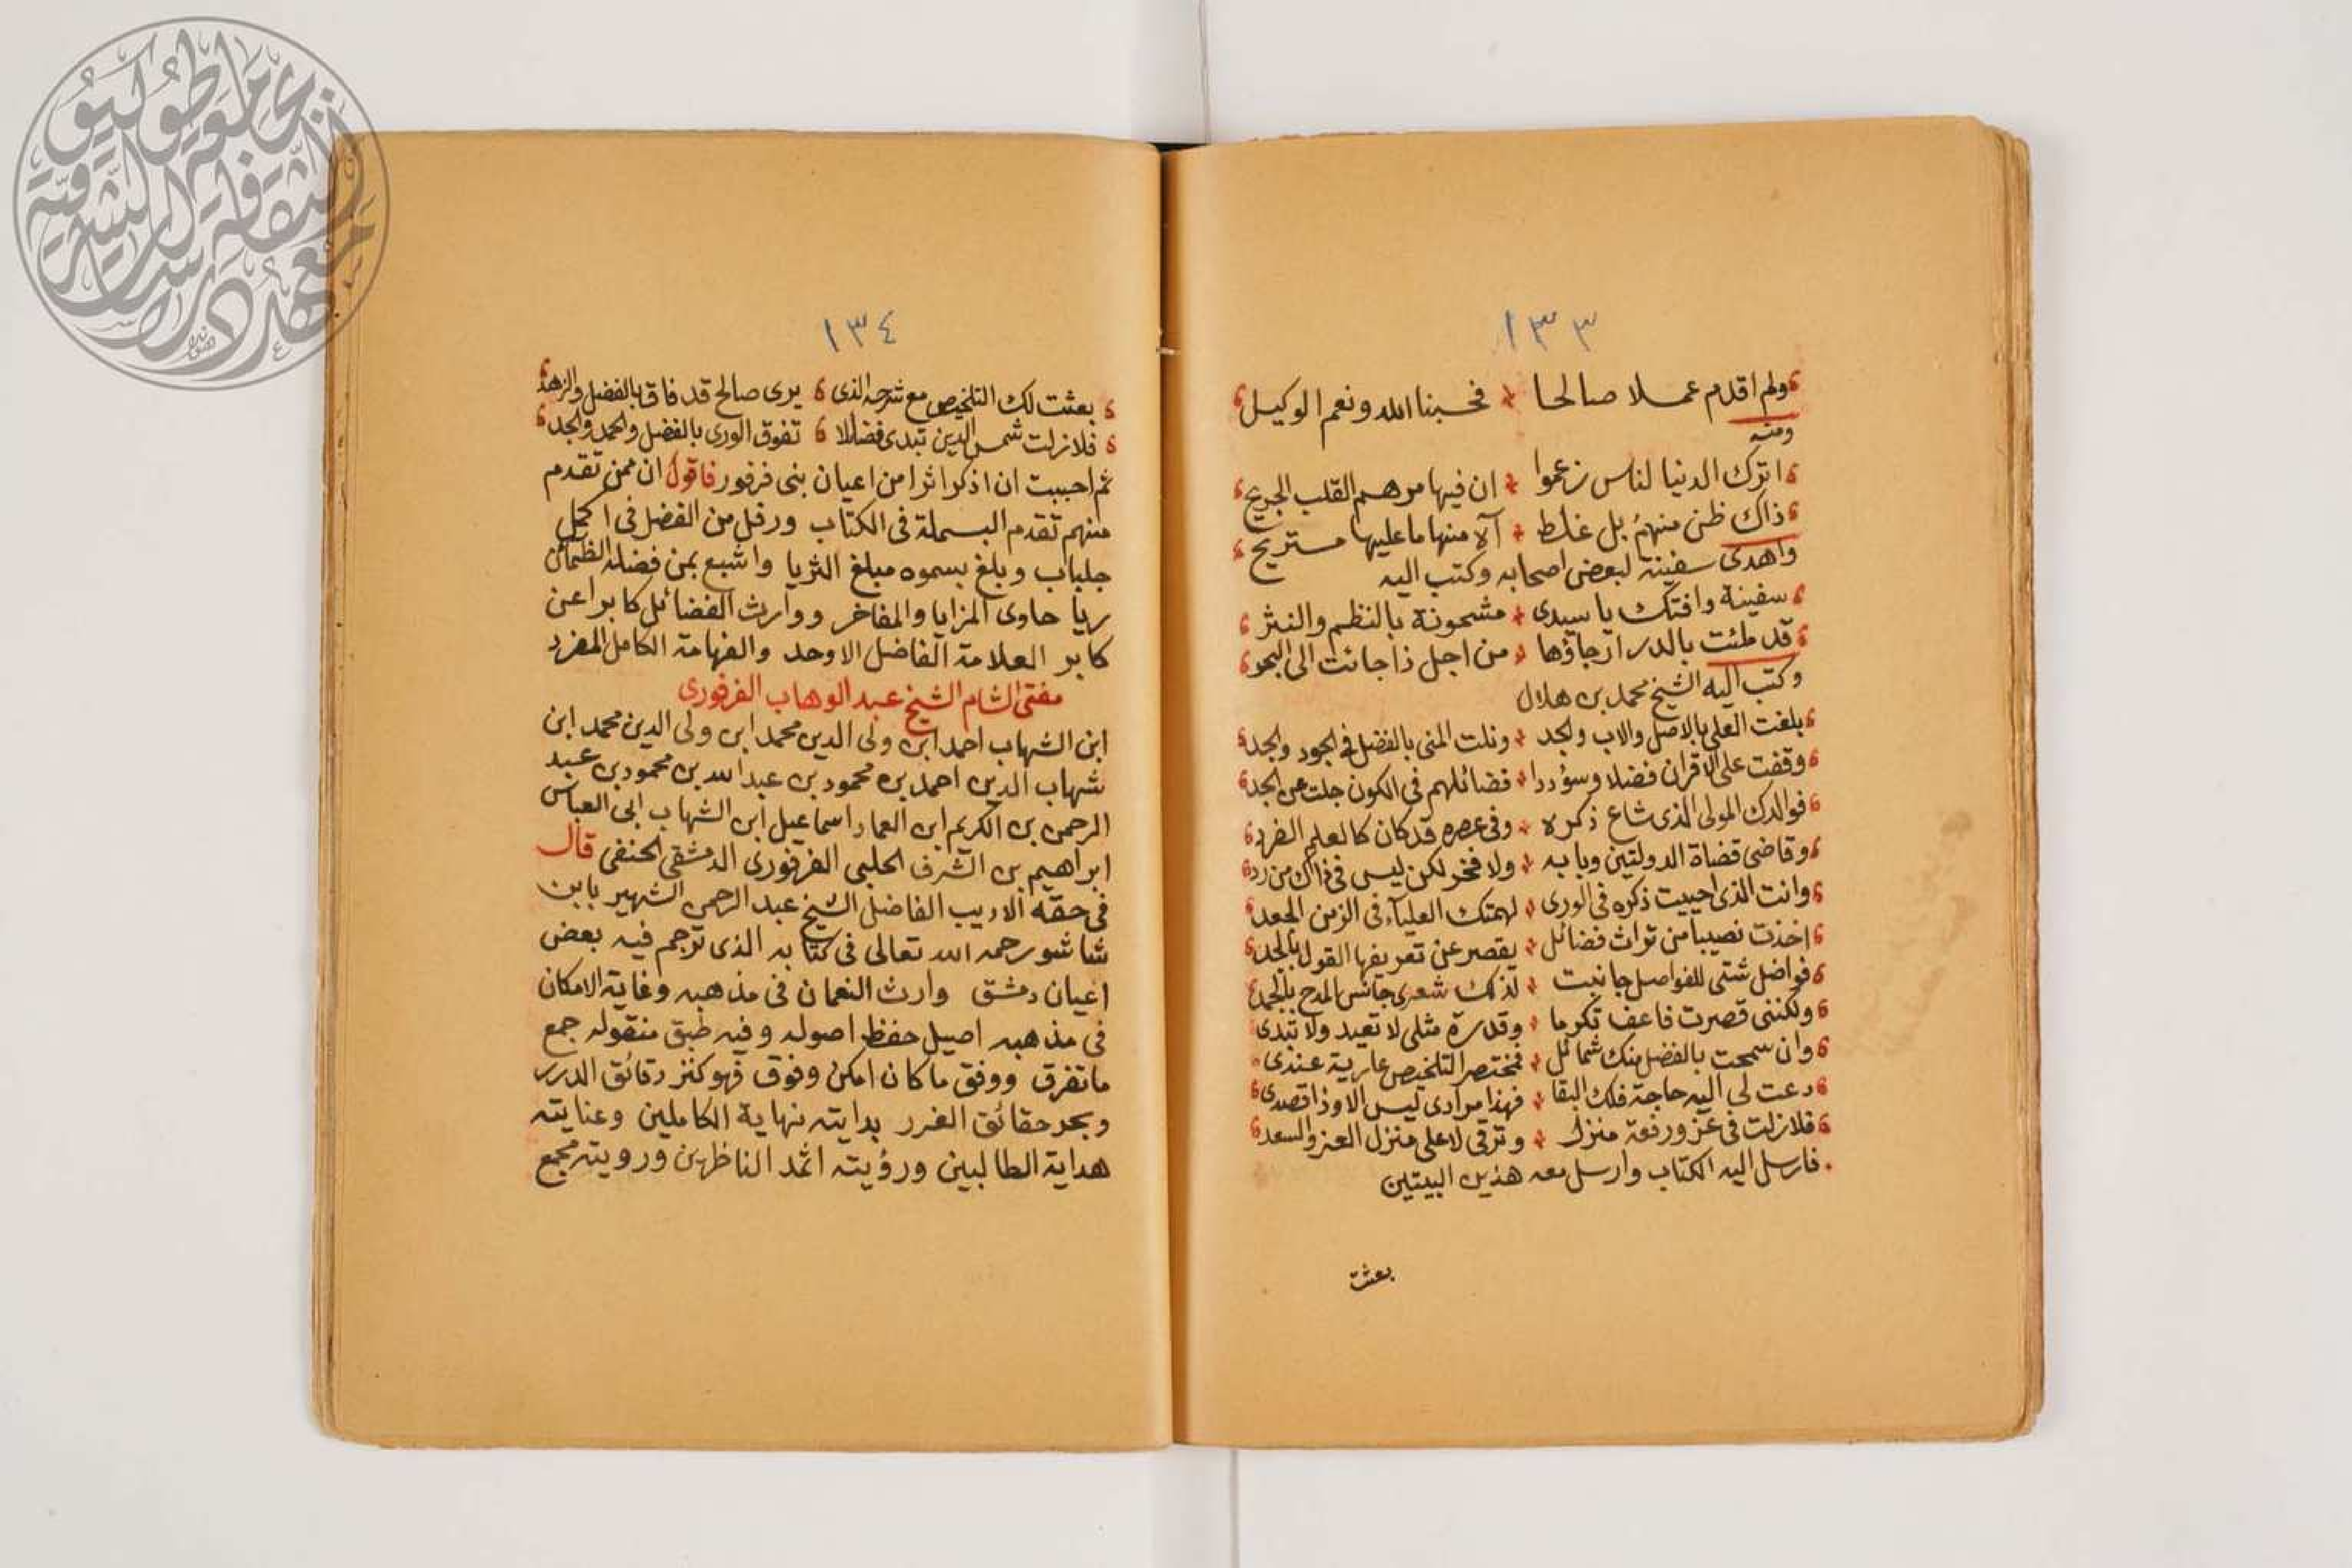 ١٣٣
ولم اقدم عملا صالحا فحسبنا الله ونعم الوكيل
ومنه
اترك الدنيا لناس زعموا ان فيها مرهم القلب الجريح
ذاك ظن منهم بل غلط آه منها ما عليها مستريح
واهدى سفينة لبعض اصحابه وكتب اليه
سفينة وافتك يا سيدى مشحونة بالنظم والنثر
قد ملئت بالدر ارجاؤها من اجل ذا جائت الى البحر
وكتب اليه الشيخ محمد بن هلال
بلغت العلى بالاصل والاب والجد ونلت المنى بالفضل فى الجود والجد
وقفت على الاقران فضلا وسؤددا فضائلهم فى الكون جلت عن الجد
فوالدك المولى الذى شاع ذكره وفى عصره قد كان كالعلم الفرد
وقاضى قضاة الدولتين وبابه ولا فخر لكن ليس فى ذاك من رد
وانت الذى احييت ذكره فى الورى لهمتك العلياء فى الزمن الجعد
اخذت نصيبا من تراث فضائل يقصر عن تعريفها القول بالحد
فواضل شتى للفواصل جانبت لذلك شعرى جانس المدح بالحمد
ولكننى قصرت فاعف تكرما وقدرة مثلى لا تعيد ولا تبدى
وان سمحت بالفضل منك شمائل فمختصر التلخيص عارية عندى
دعت لى اليه حاجة فلك البقا فهذا مرادى ليس الا وذا قصدى
فلا زلت فى عز ورفعة منزل وترقى لاعلى منزل العز والسعد
فارسل اليه الكتاب وارسل معه هذين البيتين
بعثت
١٣٤
بعثت لك التلخيص مع شرحه الذى يرى صالح قد فاق بالفضل والزهد
فلا زلت شمس الدين تبدى فضائلا تفوق الورى بالفضل والحمد والجد
ثم احببت ان اذكر اثرا من اعيان بنى فرفور فاقول ان ممن تقدم
منهم تقدم البسملة فى الكتاب ورفل من الفضل فى اكمل
جلباب وبلغ بسموه مبلغ الثريا واشبع بمن فضله الظمآن
ريا حاوى المزايا والمفاخر ووارث الفضائل كابرا عن
كابر العلامة الفاضل الاوحد والفهامة الكامل المفرد
مفتى الشام الشيخ عبد الوهاب الفرفورى
ابن الشهاب احمد ابن ولى الدين محمد ابن ولى الدين محمد ابن
شهاب الدين احمد بن محمود بن عبد الله بن محمود بن عبد
الرحمن بن الكريم ابن العماد اسماعيل ابن الشهاب ابى العباس
ابراهيم بن الشرف الحلبى الفرفورى الدمشقى الحنفى قال
فى حقه الاديب الفاضل الشيخ عبد الرحمن الشهير بابن
شاشو رحمه الله تعالى فى كتابه الذى ترجم فيه بعض
اعيان دمشق وارث النعمان فى مذهبه وغاية الامكان
فى مذهبه اصيل حفظ اصوله وفيه طبق منقوله جمع
ما تفرق ووفق ما كان امكن وفوق فهو كنز دقائق الدرر
وبحر حقائق الغرر بدايته نهاية الكاملين وعنايته
هداية الطالبين ورؤيته اثمد الناظرين ورويته مجمع